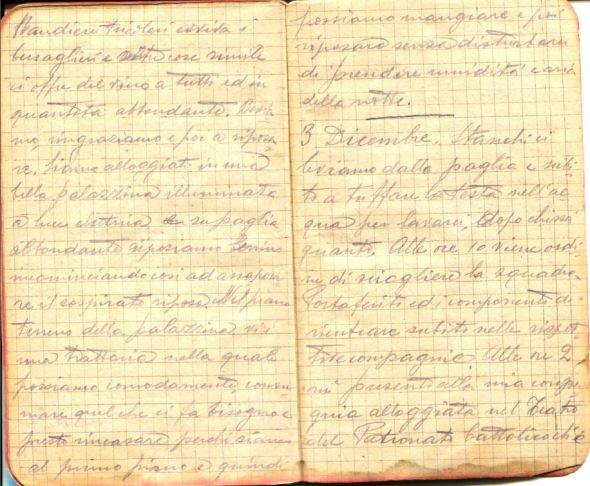 Bandiere tricolori evviva i
bersaglieri e altre cose simile
ci offre del vino a tutti ed in
quantità abbondante. Bevia
mo, ringraziamo e poi a riposa
re. Siamo alloggiati in una
bella palazzina illuminata
a luce elettrica e su paglia
abbondante riposiamo
incominciando così ad assapora
re il sospirato riposo. Nel piano
terreno della palazzina vi è
una trattoria nella quale
possiamo comodamente consu
mare quel che ci fa bisogno e
presto rincasare perché siamo
al primo piano e quindi
possiamo mangiare e poi
riposare senza disturbarci
di prendere umidità e aria
della notte.
3 Dicembre. Stanchi ci
leviamo dalla paglia e subi
to a tuffare la testa nell'ac
qua per lavarci, dopo chissà
quanti. Alle ore 10 viene ordi
ne di sciogliere la squadra
porta feriti ed i componenti di
rientrare subito nelle rispet
tive compagnie. Alle ore 2
mi presento alla mia compa
gnia alloggiata nel Teatro
del Patronato Cattolico che